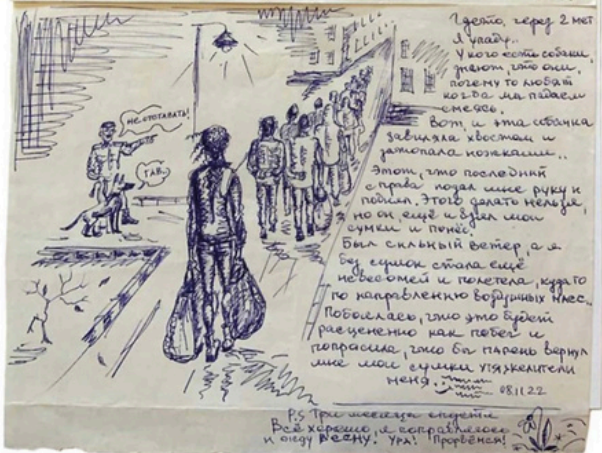 НЕ ОТСТАВАТЬ!
ГАВ.
Где-то, через 2 мет
Я упаду..
У кого есть собаки,
знают, что они,
почему то любят
когда мы падаем
смеясь.
Вот, и эта собачка
завиляла хвостом и
затопала ножками..
Этот, что последний
справа подал мне руку и
поднял. Этого делать нельзя,
но он ещё и взял мои
сумки и понёс.
Был сильный ветер, а я
без сумок стала ещё
невесомей и полетела, куда то
по направлению воздушных масс..
Побоялась, что это будет
расценено как побег и
попросила, что бы парень вернул
мне мои сумки утяжелители
меня..
08.11.22
P.S Три месяца спустя
Всё хорошо, я поправляюсь
и жду ВЕСНУ! Ура! Прорвёмся!